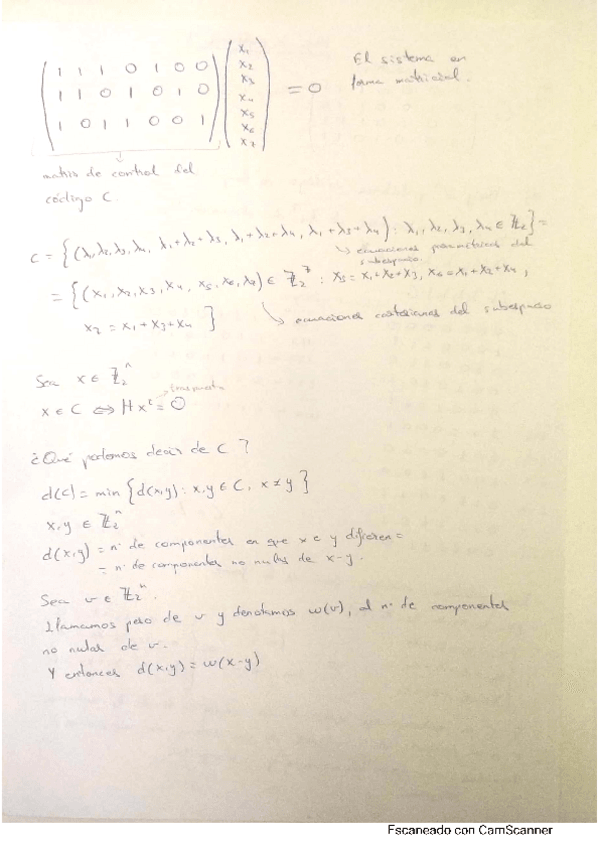 1 1 1 0 1 0 0
1 1 0 1 0 1 0
1 0 1 1 0 0 1
x₁
x₂
x₃
x₄
x₅
x₆
x₇
= 0
El sistema en
forma matricial.
matriz de control del
código C.
C = {(λ₁, λ₂, λ₃, λ₄, λ₁+λ₂+λ₃, λ₁+λ₂+λ₄, λ₁+λ₃+λ₄) : λ₁, λ₂, λ₃, λ₄ ∈ ℤ₂} =
↳ ecuaciones paramétricas del
subespacio.
= {(x₁, x₂, x₃, x₄, x₅, x₆, x₇) ∈ ℤ₂⁷ : x₅ = x₁+x₂+x₃, x₆ = x₁+x₂+x₄,
x₇ = x₁+x₃+x₄}
↳ ecuaciones cartesianas del subespacio
Sea x ∈ ℤ₂ⁿ
x ∈ C ⇔ Hxᵗ = 0
¿Qué podemos decir de C?
d(C) = min {d(x,y) : x,y ∈ C, x ≠ y}
x, y ∈ ℤ₂ⁿ
d(x,y) = nº de componentes en que x e y difieren =
= nº de componentes no nulas de x-y.
Sea v ∈ ℤ₂ⁿ.
Llamamos peso de v y denotamos w(v), al nº de componentes
no nulas de v.
Y entonces d(x,y) = w(x-y)
Escaneado con CamScanner